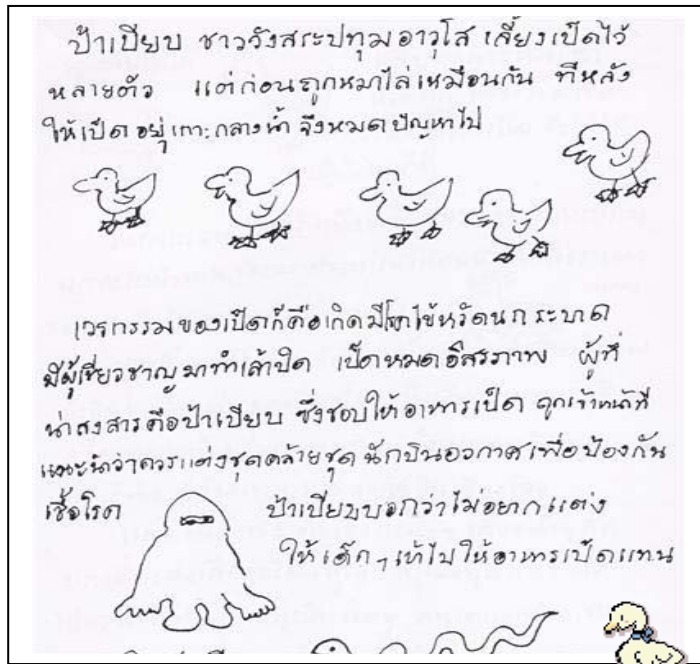 ป้าเปียบ ชาววังสระปทุมอาวุโส เลี้ยงเป็ดไว้
หลายตัว แต่ก่อนถูกหมาไล่เหมือนกัน ทีหลัง
ให้เป็ดอยู่เกาะกลางน้ำ จึงหมดปัญหาไป
เวรกรรมของเป็ดก็คือเกิดมีโรคไข้หวัดนกระบาด
มีผู้เชี่ยวชาญมาทำเล้าปิด เป็ดหมดอิสรภาพ ผู้ที่
น่าสงสารคือป้าเปียบ ซึ่งชอบให้อาหารเป็ด ถูกเจ้าหน้าที่
แนะนำว่าควรแต่งชุดคล้ายชุดนักบินอวกาศเพื่อป้องกัน
เชื้อโรค ป้าเปียบบอกว่าไม่อยากแต่ง
ให้เด็กๆ เข้าไปให้อาหารเป็ดแทน